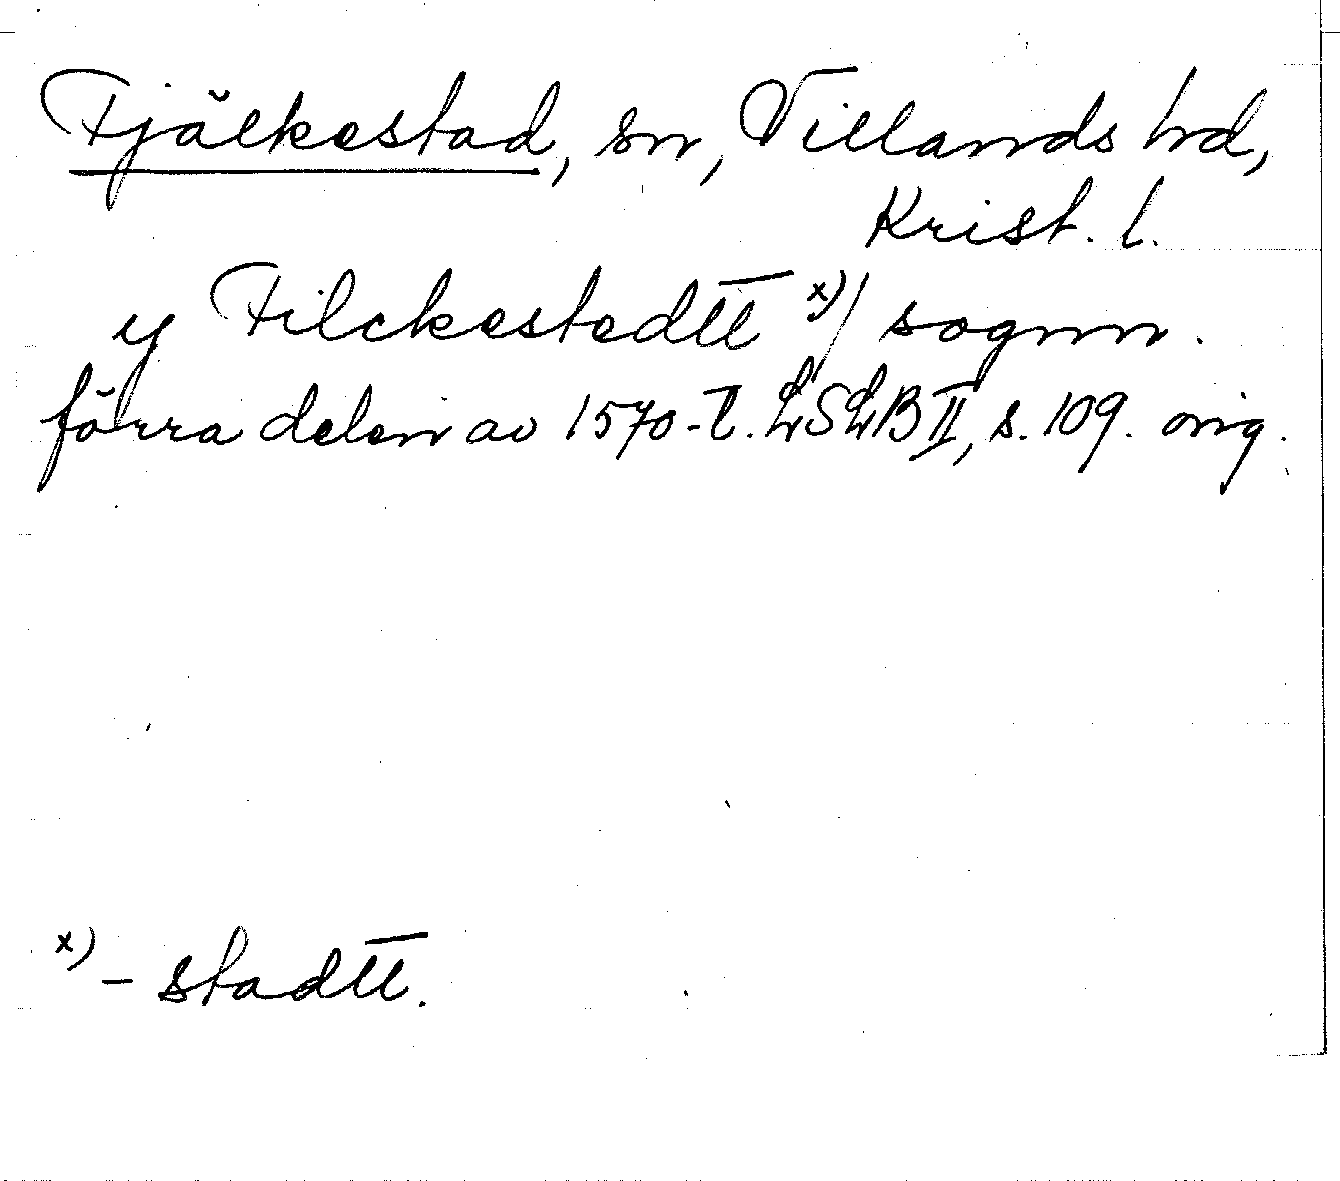 Fjälkestad, sn, Villands hd,
Krist. l.
y Filckestedtt x)/ sognn.
förra delen av 1570-t. LSLB II, s. 109. orig.
x) - stadtt.